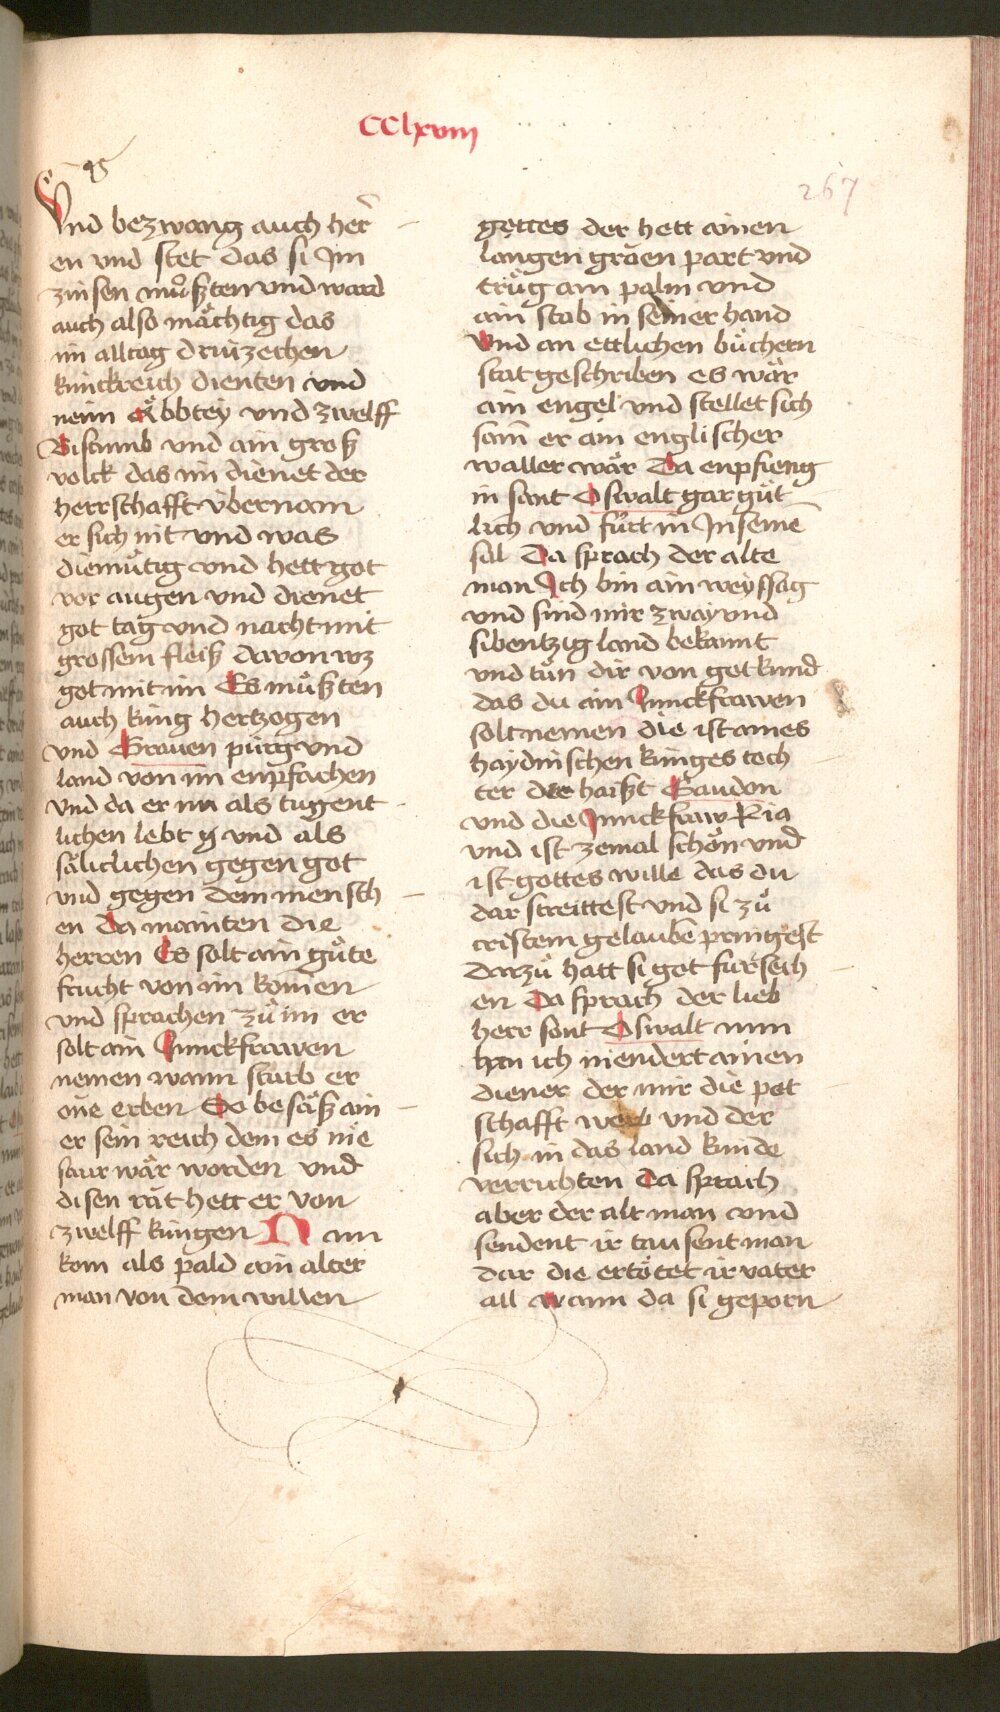 CClxviij
267
Vnd bezwang auch her̄
en vnd stet das si Im
zinsen můsten vnd ward
auch also mächtig das
im alltag drüzechen
künckreich dienten vnd
neün Abbtey vnd zwelff
Bistumb vnd ain groß
volck das im dienet der
herrschafft übernam
er sich nit vnd was
diemütig vnd hett got
vor augen vnd dienet
got tag vnd nacht mit
grossem fleiß davon wz
got mit im Es müßten
auch küng hertzogen
vnd Grauen pürg vnd
land von im enpfachen
vnd da er nu als tugent
lichen lebt vnd als
säliclichen gegen got
vnd gegen dem mensch
en Da mainten die
herren Es solt ain gůte
frucht von im komen
vnd sprachen zů im er
solt ain Junckfrawen
nemen wann sturb er
one erben So besäß ain
er sein reich dem es nie
saur wär worden vnd
disen rät hett er von
zwelff küngen Nun
kom als pald ain alter
man von dem willen
gottes der hett ainen
langen gröen part vnd
trůg ain palm vnd
ain stab in seiner hand
Vnd an ettlichen büchern
stat geschriben es wär
ain engel vnd stellet sich
sam er ain englischer
waller wär Da enpfieng
in sant Oswalt gar güt
lich vnd fürt in In seinē
sal Da sprach der alte
man Ich bin ain weyssag
vnd sind mir zway vnd
sibentzig land bekannt
vnd tůn dir von got kund
das du ain Junckfrawen
solt nemen die ist aines
haydnischen künges toch
ter der haißt Gaudon
vnd die Junckfraw Ria
vnd ist zemal schön vnd
ist gottes wille das du
dar streittest vnd si zů
cristem gelauben pringest
Darzů hatt si got fürsech
en Da sprach der lieb
herr sant Oswalt nun
han ich niendert ainen
diener der mir die pot
schafft werb vnd der
sich in das land künde
verrichten Da sprach
aber der alt man vnd
sendent ir tausent man
dar die ertötet ir vater
all wann da si geporn